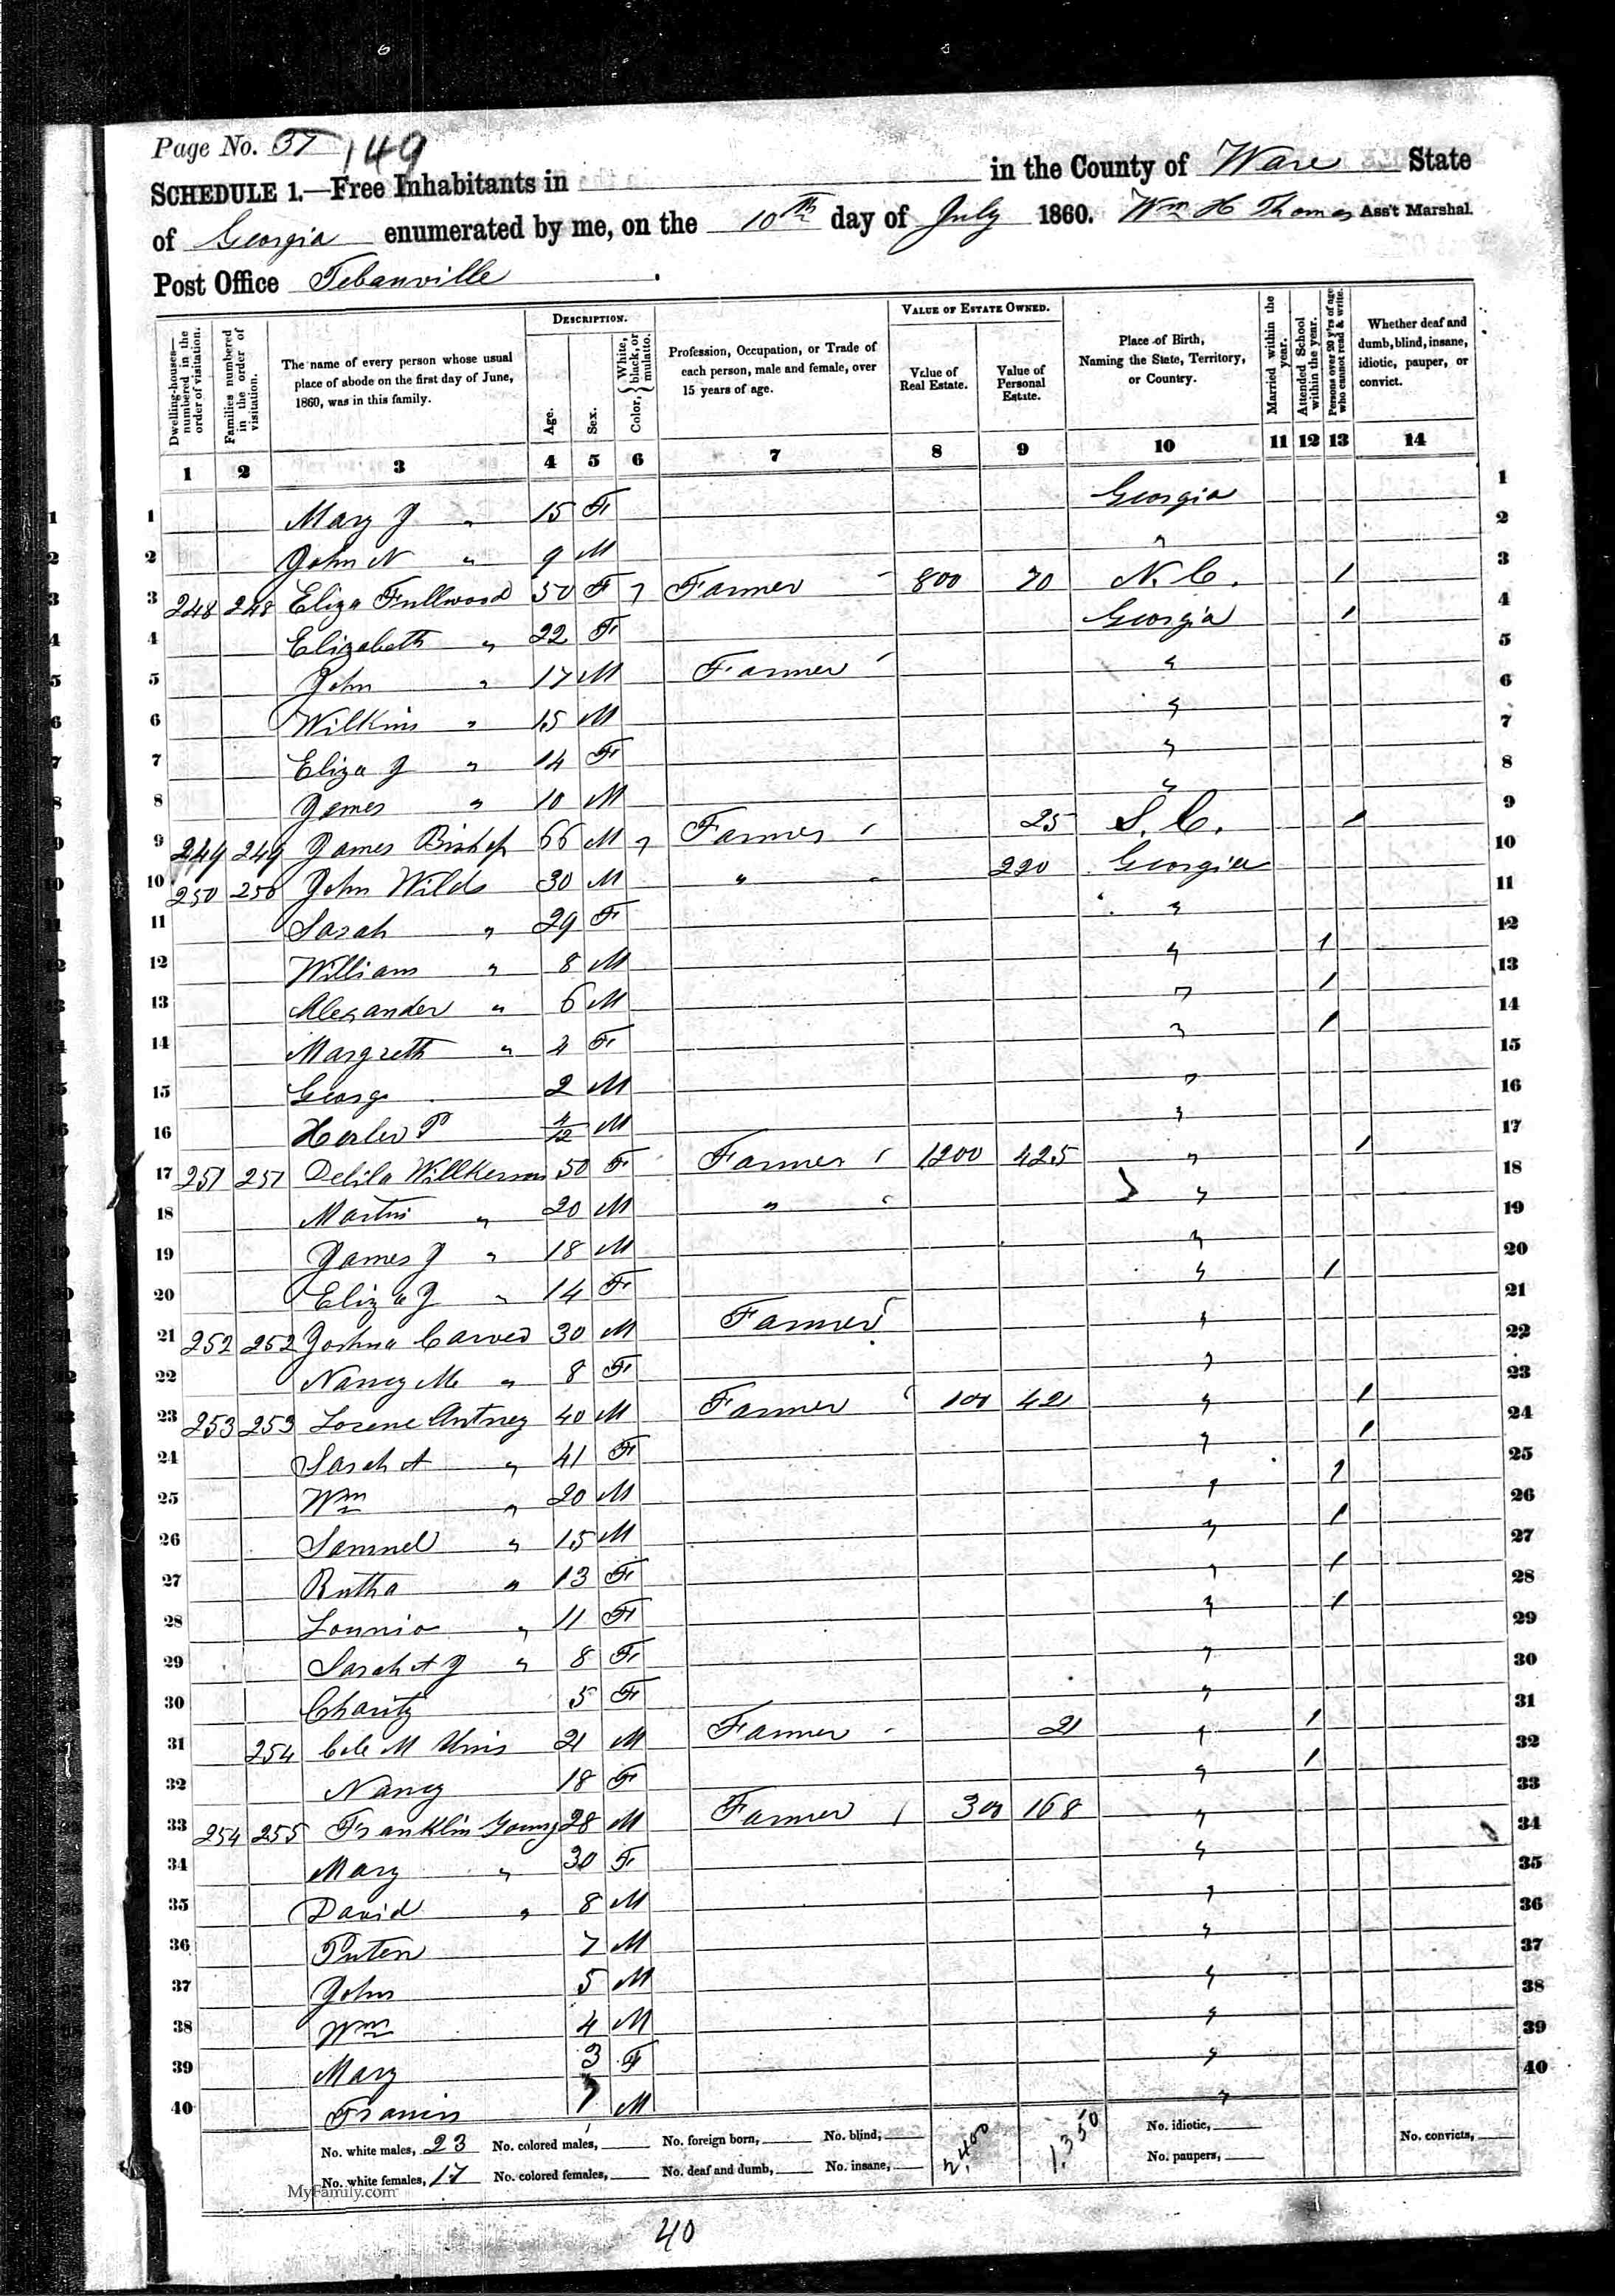 Page No. 37 149
SCHEDULE 1.—Free Inhabitants in in the County of Ware State
of Georgia enumerated by me, on the 10th day of July 1860. Wm H Thomas Ass't Marshal.
Post Office Tebauville
Dwelling-houses—numbered in the order of visitation.
Families numbered in the order of visitation.
The name of every person whose usual place of abode on the first day of June, 1860, was in this family.
DESCRIPTION.
Age.
Sex.
Color, { White, black, or mulatto.
Profession, Occupation, or Trade of each person, male and female, over 15 years of age.
VALUE OF ESTATE OWNED.
Value of Real Estate.
Value of Personal Estate.
Place of Birth, Naming the State, Territory, or Country.
Married within the year.
Attended School within the year.
Persons over 20 y'rs of age who cannot read & write.
Whether deaf and dumb, blind, insane, idiotic, pauper, or convict.
1 2 3 4 5 6 7 8 9 10 11 12 13 14
1 Mary J " 15 F Georgia 1
2 John N " 9 M " 2
3 248 248 Eliza Fullwood 50 F Farmer 800 70 N. C. 1 3
4 Elizabeth " 22 F Georgia 1 4
5 John " 17 M Farmer " 5
6 Wilkins " 15 M " 6
7 Eliza J " 14 F " 7
8 James " 10 M " 8
9 249 249 James Bishop 66 M Farmer 25 S. C. 1 9
10 250 250 John Wilds 30 M " 220 Georgia 10
11 Sarah " 29 F " 11
12 William " 8 M " 1 12
13 Alexander " 6 M " 1 13
14 Margreth " 4 F " 1 14
15 George 2 M " 15
16 P /12 M " 16
17 251 251 Delila Willkerson 50 F Farmer 1200 425 " 1 17
18 Martin " 20 M " " 18
19 James J " 18 M " 19
20 Eliza J " 14 F " 1 20
21 252 252 Joshua Carver 30 M Farmer " 21
22 Nancy M " 8 F " 22
23 253 253 Lorene Antney 40 M Farmer 100 42 " 1 23
24 Sarah A " 41 F " 1 24
25 Wm " 20 M " 1 25
26 Samuel " 15 M " 1 26
27 Rutha " 13 F " 1 27
28 " 11 F " 1 28
29 Sarah A J " 8 F " 29
30 Charity 5 F " 30
31 254 M 21 M Farmer 21 " 1 31
32 Nancy 18 F " 1 32
33 254 255 Franklin Young 28 M Farmer 300 168 " 33
34 Mary " 30 F " 34
35 David " 8 M " 35
36 7 M " 36
37 John 5 M " 37
38 Wm 4 M " 38
39 Mary 3 F " 39
40 Francis 1 M " 40
No. white males, 23 No. colored males, No. foreign born, No. blind, 2,400 1,350 No. idiotic, No. convicts,
No. white females, 17 No. colored females, No. deaf and dumb, No. insane, No. paupers,
MyFamily.com
40